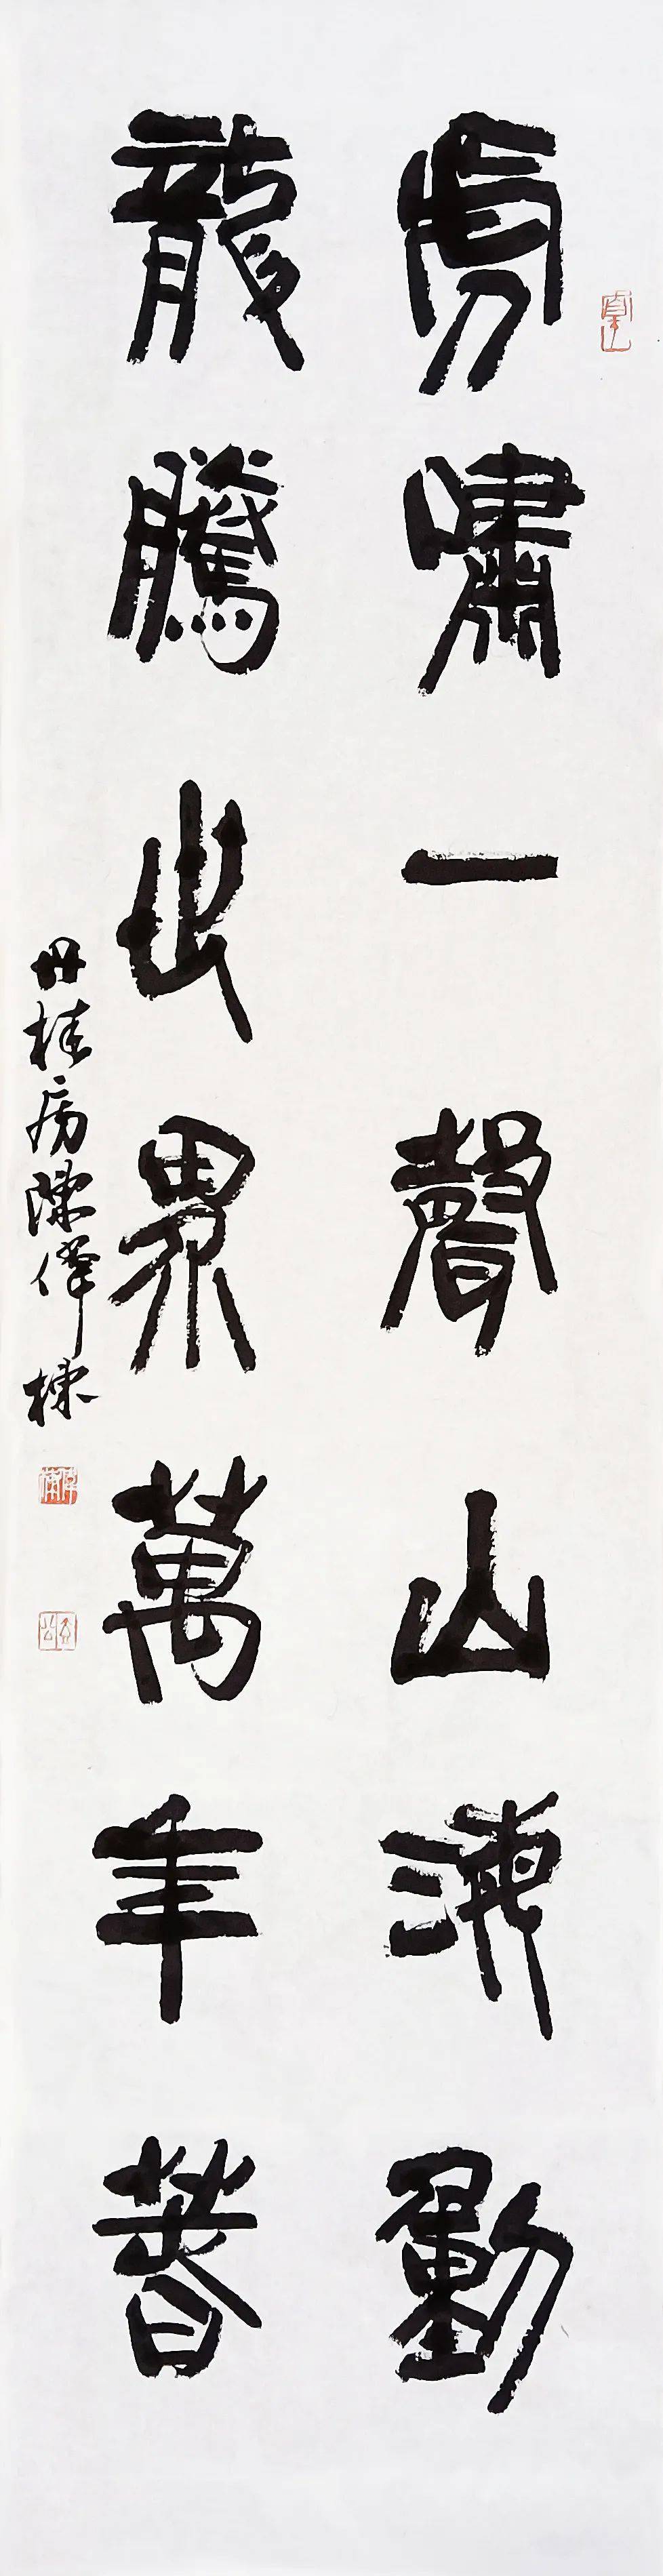 虎嘯一聲山海動
龍騰世界萬年春
丹桂房陳偉棟